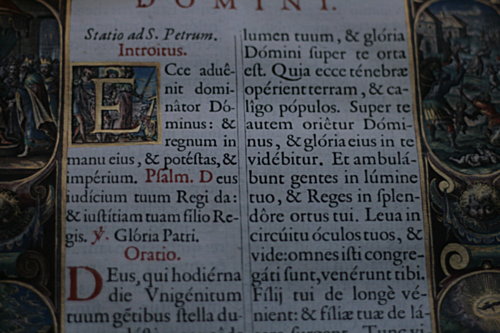 DOMINI.
Statio ad S. Petrum.
Introitus.
ECce aduê-
nit domi-
nâtor Dó-
minus: &
regnum in
manu eius, & potéſtas, &
impérium. Pſalm. Deus
iudícium tuum Regi da:
& iuſtítiam tuam fílio Re-
gis. ℣. Glória Patri.
Oratio.
DEus, qui hodiérna
die Vnigénitum
tuum gẽtibus ſtella du-
lumen tuum, & glória
Dómini ſuper te orta
eſt. Quia ecce ténebræ
opérient terram, & ca-
lígo pópulos. Super te
autem oriêtur Dómi-
nus, & glória eius in te
vidébitur. Et ambulá-
bunt gentes in lúmine
tuo, & Reges in ſplen-
dôre ortus tui. Leua in
circúitu óculos tuos, &
vide: omnes iſti congre-
gáti ſunt, venérunt tibi.
Fílij tui de longè vé-
nient: & fíliæ tuæ de lá-